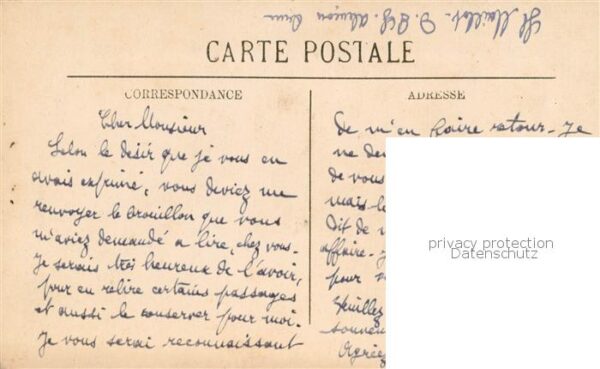 CARTE POSTALE
CORRESPONDANCE
Cher Monsieur
Selon le désir que je vous en
avais exprimé, vous deviez me
renvoyer le brouillon que vous
m'aviez demandé a lire, chez vous.
Je serais très heureux de l'avoir,
pour en relire certains passages
et aussi le conserver pour moi.
Je vous serai reconnaissant
ADRESSE
de m'en faire retour. Je
ne
de vous
mais le
Dit de
affaire.
pour
Veuillez
Agréez
privacy protection
Datenschutz